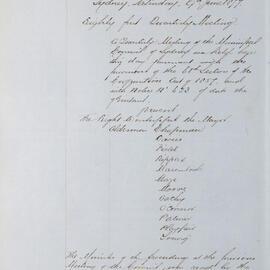 Sydney, Saturday, 9th June 1877.
Eighty first Quarterly Meeting
A Quarterly Meeting of the Municipal
Council of Sydney was held
this day pursuant with the
provisions of the 60th Section of the
Corporation Act of 1857, and
with Notice No 623 of date the
present
The Right Worshipful the Mayor
Alderman Chapman
Davies
Field
Kippax
Macintosh
Moore
Oatley
O'Connor
Palmer
Playfair
Young
The Minutes of the proceedings at the previous
Meeting of the Council were read by the